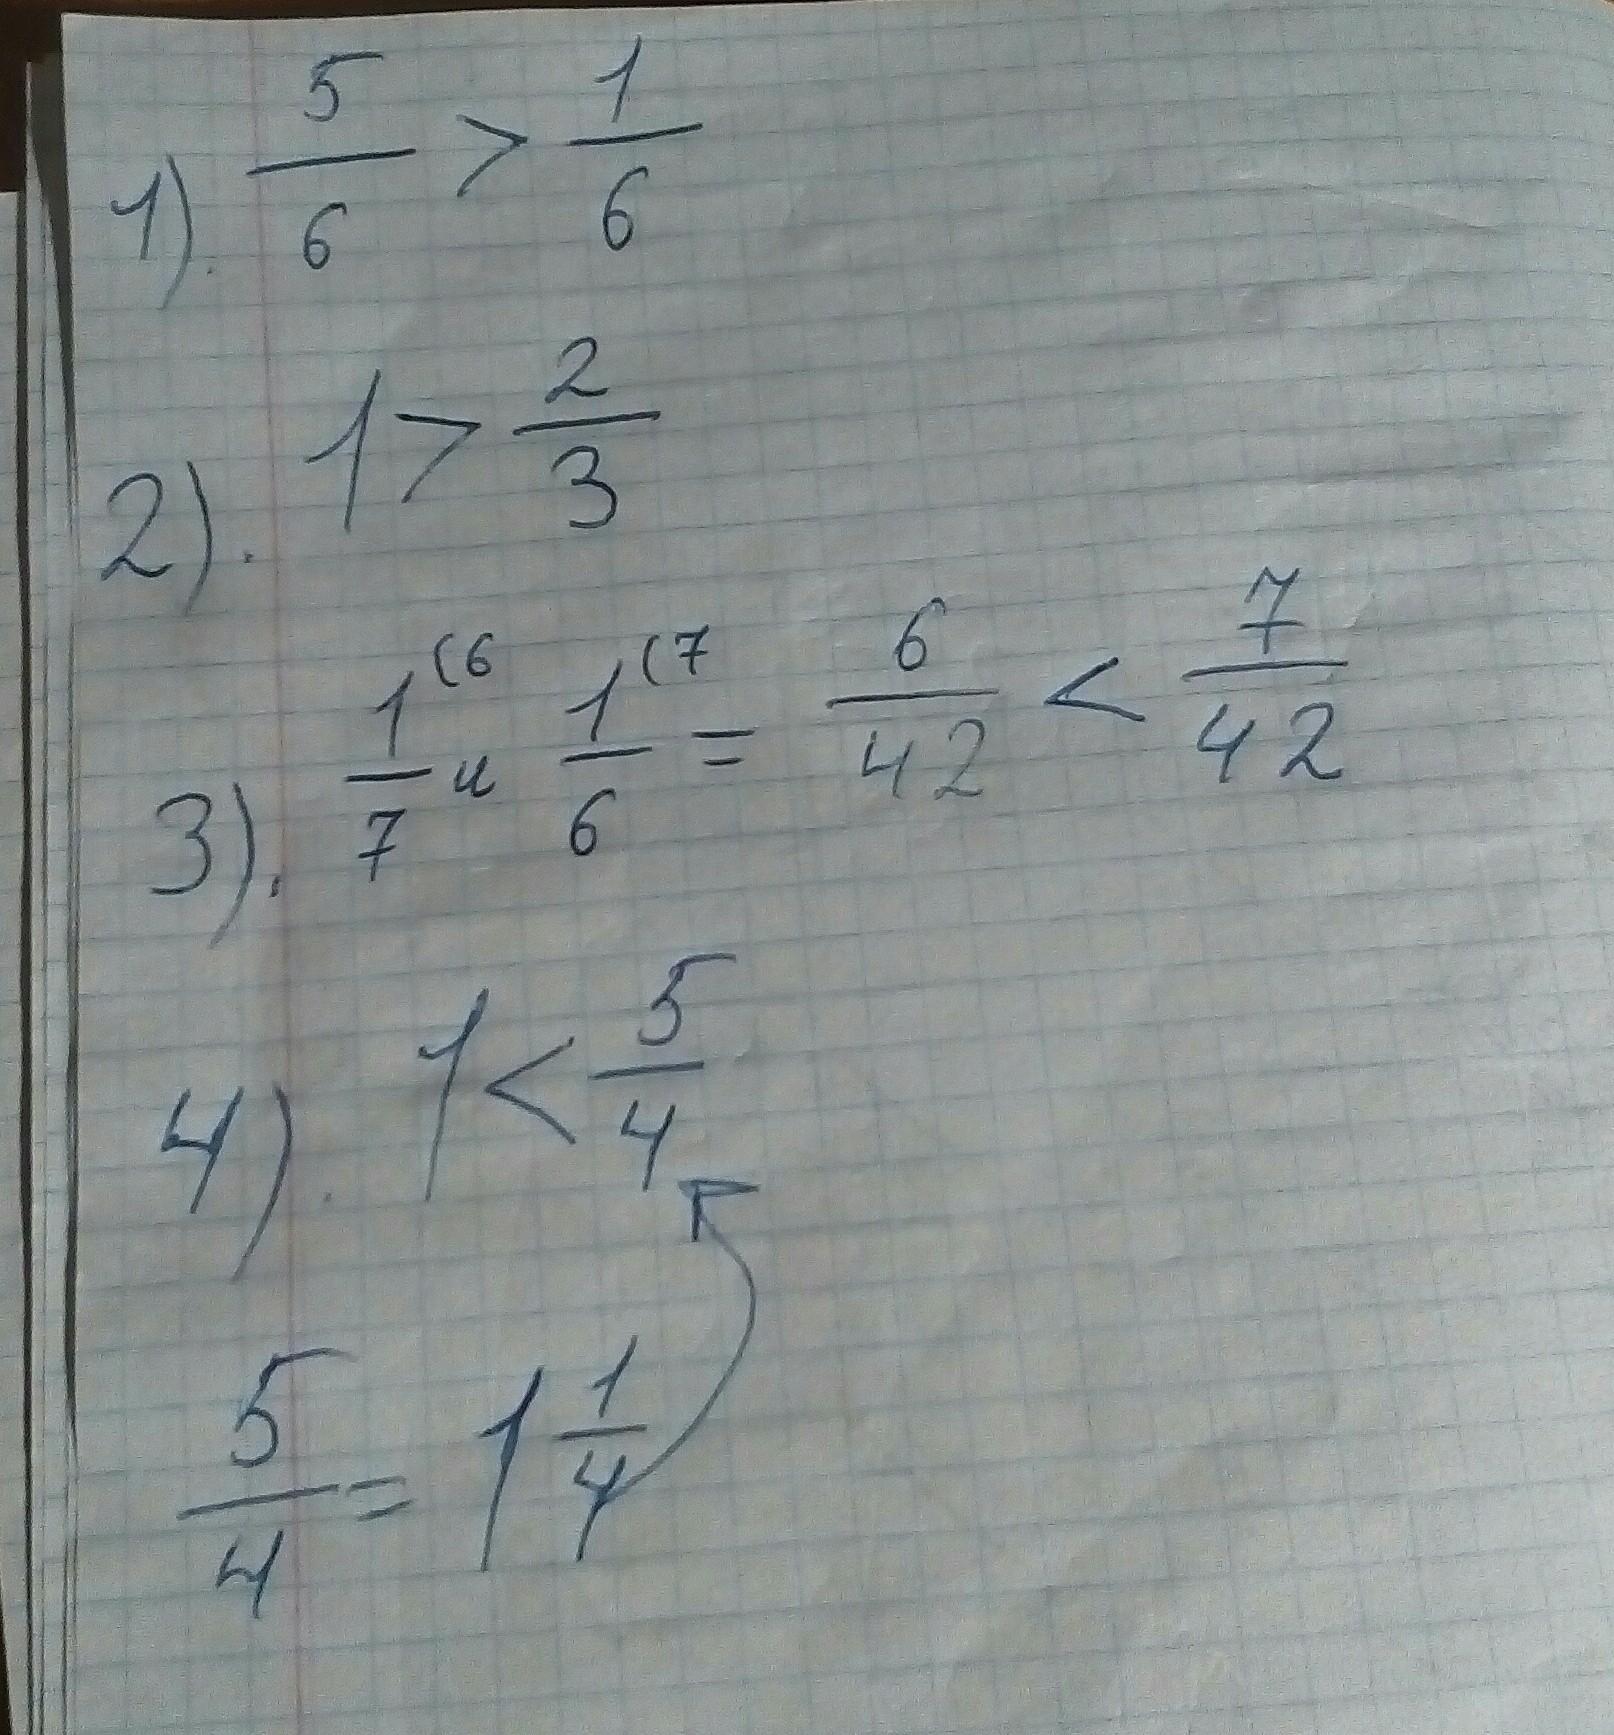 1). 5/6 > 1/6
2). 1 > 2/3
3). 1/7 (6 и 1/6 (7 = 6/42 < 7/42
4). 1 < 5/4
5/4 = 1 1/4